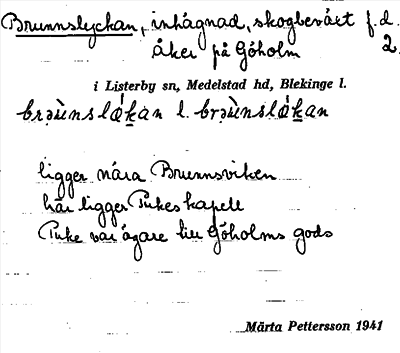 Brunnslyckan, inhägnad, skogbeväxt f.d.
åker på Göholm 2.
i Listerby sn, Medelstad hd, Blekinge l.
l.
ligger nära Brunnsviken
här ligger Pukes kapell
Puke var ägare till Göholms gods
Märta Pettersson 1941